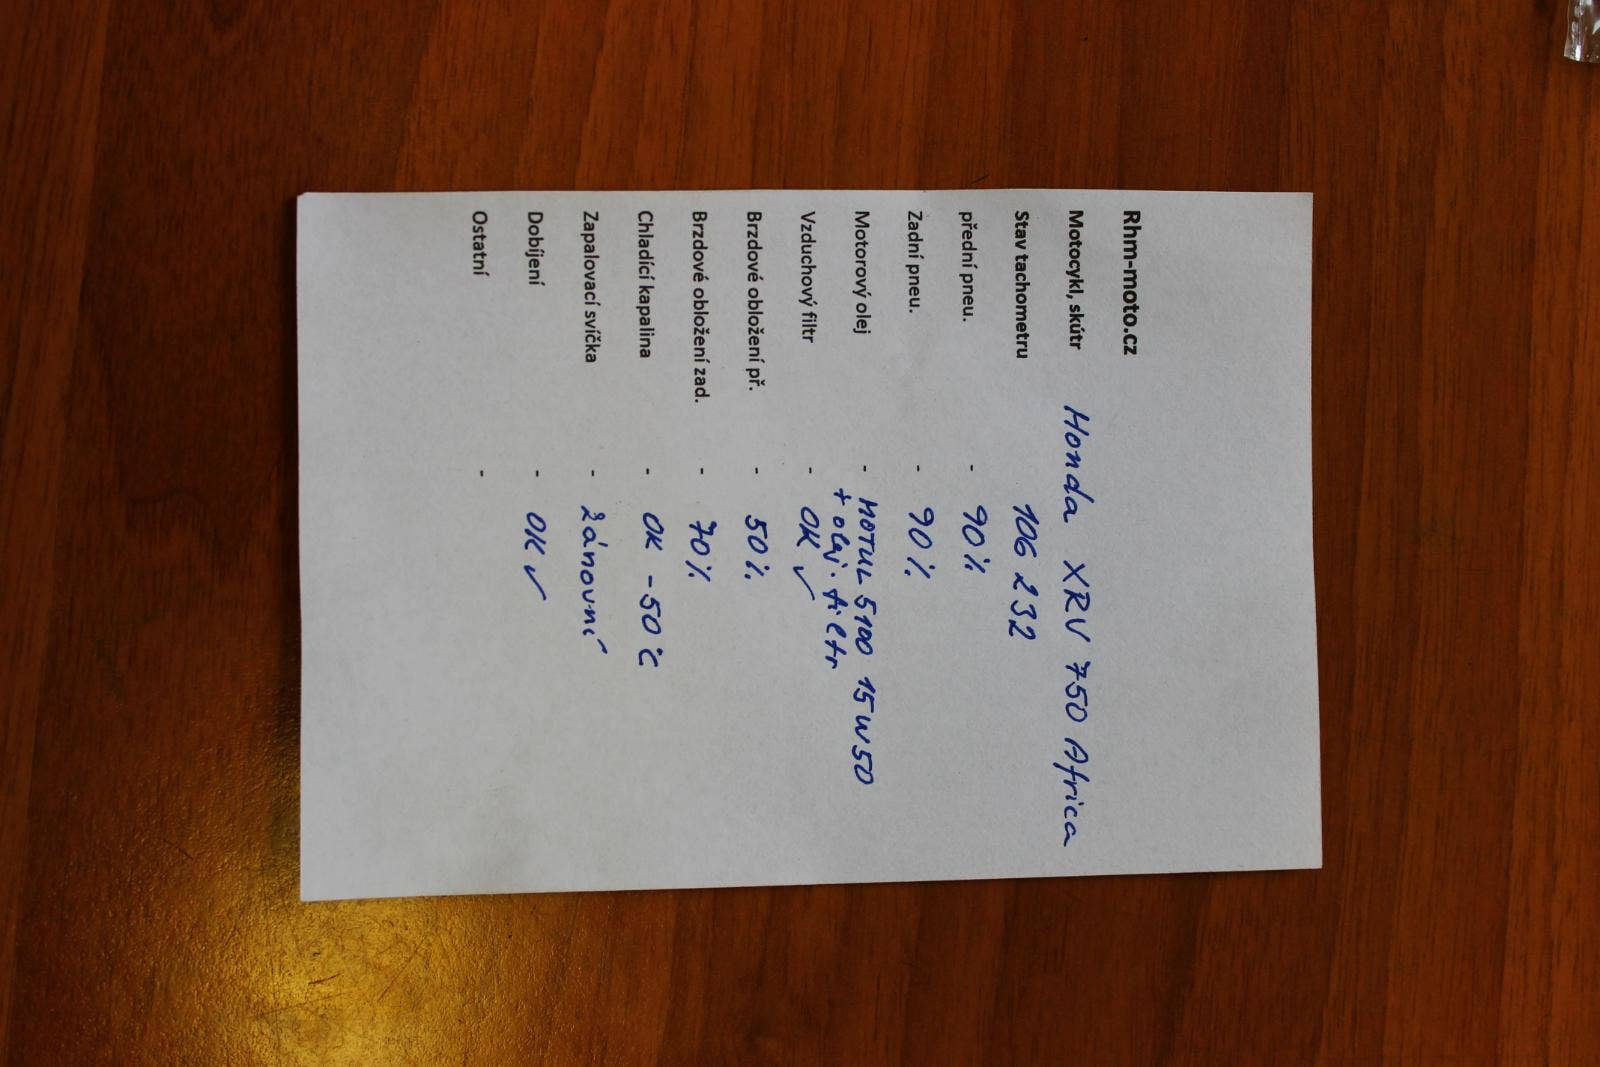 Rhm-moto.cz
Motocykl, skútr Honda XRV 750 Africa
Stav tachometru 106 232
přední pneu. - 90%
Zadní pneu. - 90%
Motorový olej - MOTUL 5100 15W50
+ olej. filtr
Vzduchový filtr - OK ✓
Brzdové obložení př. - 50%
Brzdové obložení zad. - 70%
Chladící kapalina - OK -50°C
Zapalovací svíčka - zánovní
Dobíjení - OK ✓
Ostatní -